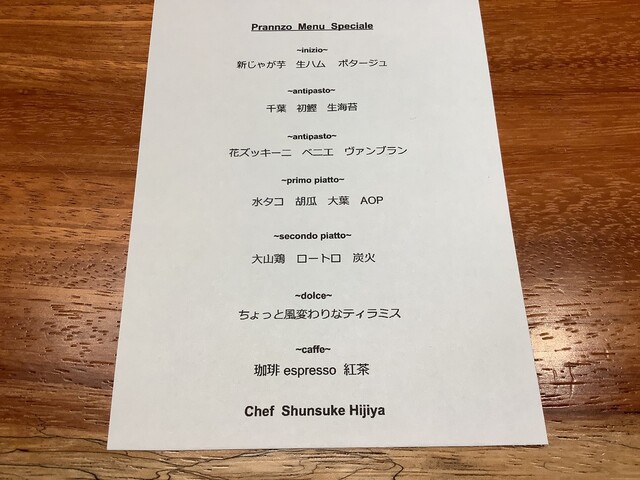 Prannzo Menu Speciale
~inizio~
新じゃが芋 生ハム ポタージュ
~antipasto~
千葉 初鰹 生海苔
~antipasto~
花ズッキーニ ベニエ ヴァンブラン
~primo piatto~
水タコ 胡瓜 大葉 AOP
~secondo piatto~
大山鶏 ロートロ 炭火
~dolce~
ちょっと風変わりなティラミス
~caffe~
珈琲 espresso 紅茶
Chef Shunsuke Hijiya